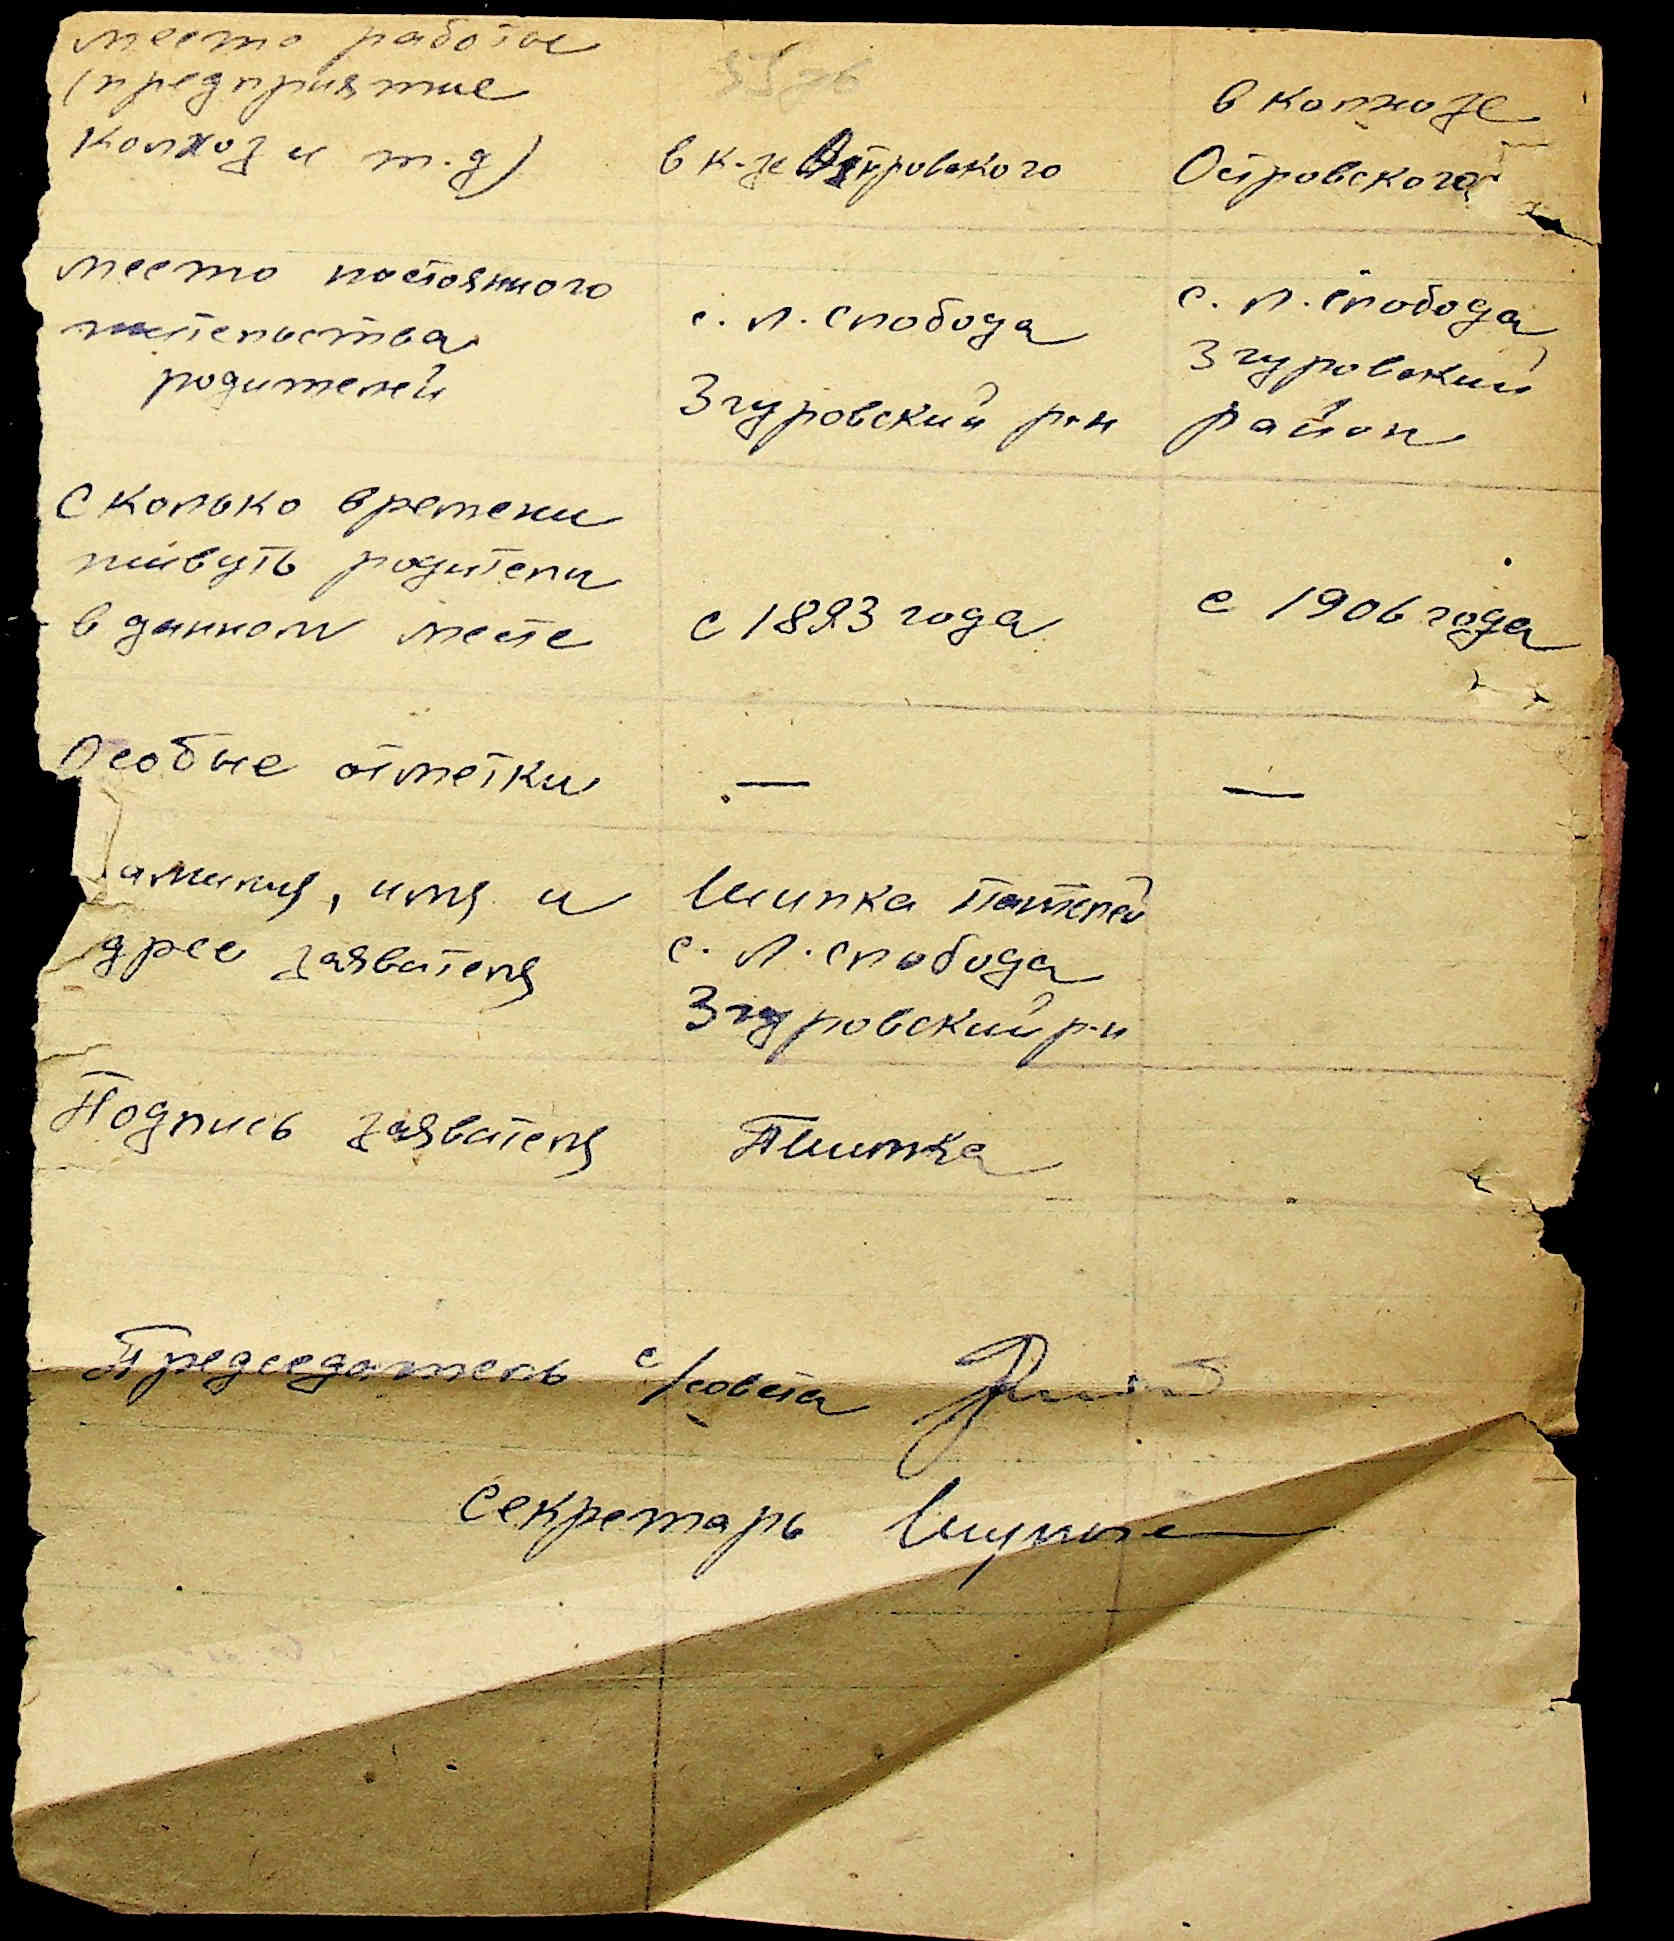 место работы
(предприятие
колхоз и т.д)
в к-зе Островского
в колхозе
Островского
место постоянного
жительства
родителей
с. Л. слобода
Згуровский р-н
с. Л. слобода
Згуровский
район
Сколько времени
живуть родители
в данном месте
с 1893 года
с 1906 года
Особые отметки
—
—
амилия, имя и
дрес заявителя
Шипка Пантелей
с. Л. слобода
Згуровский р-н
Подпись заявителя
Председатель с/совета
Секретарь